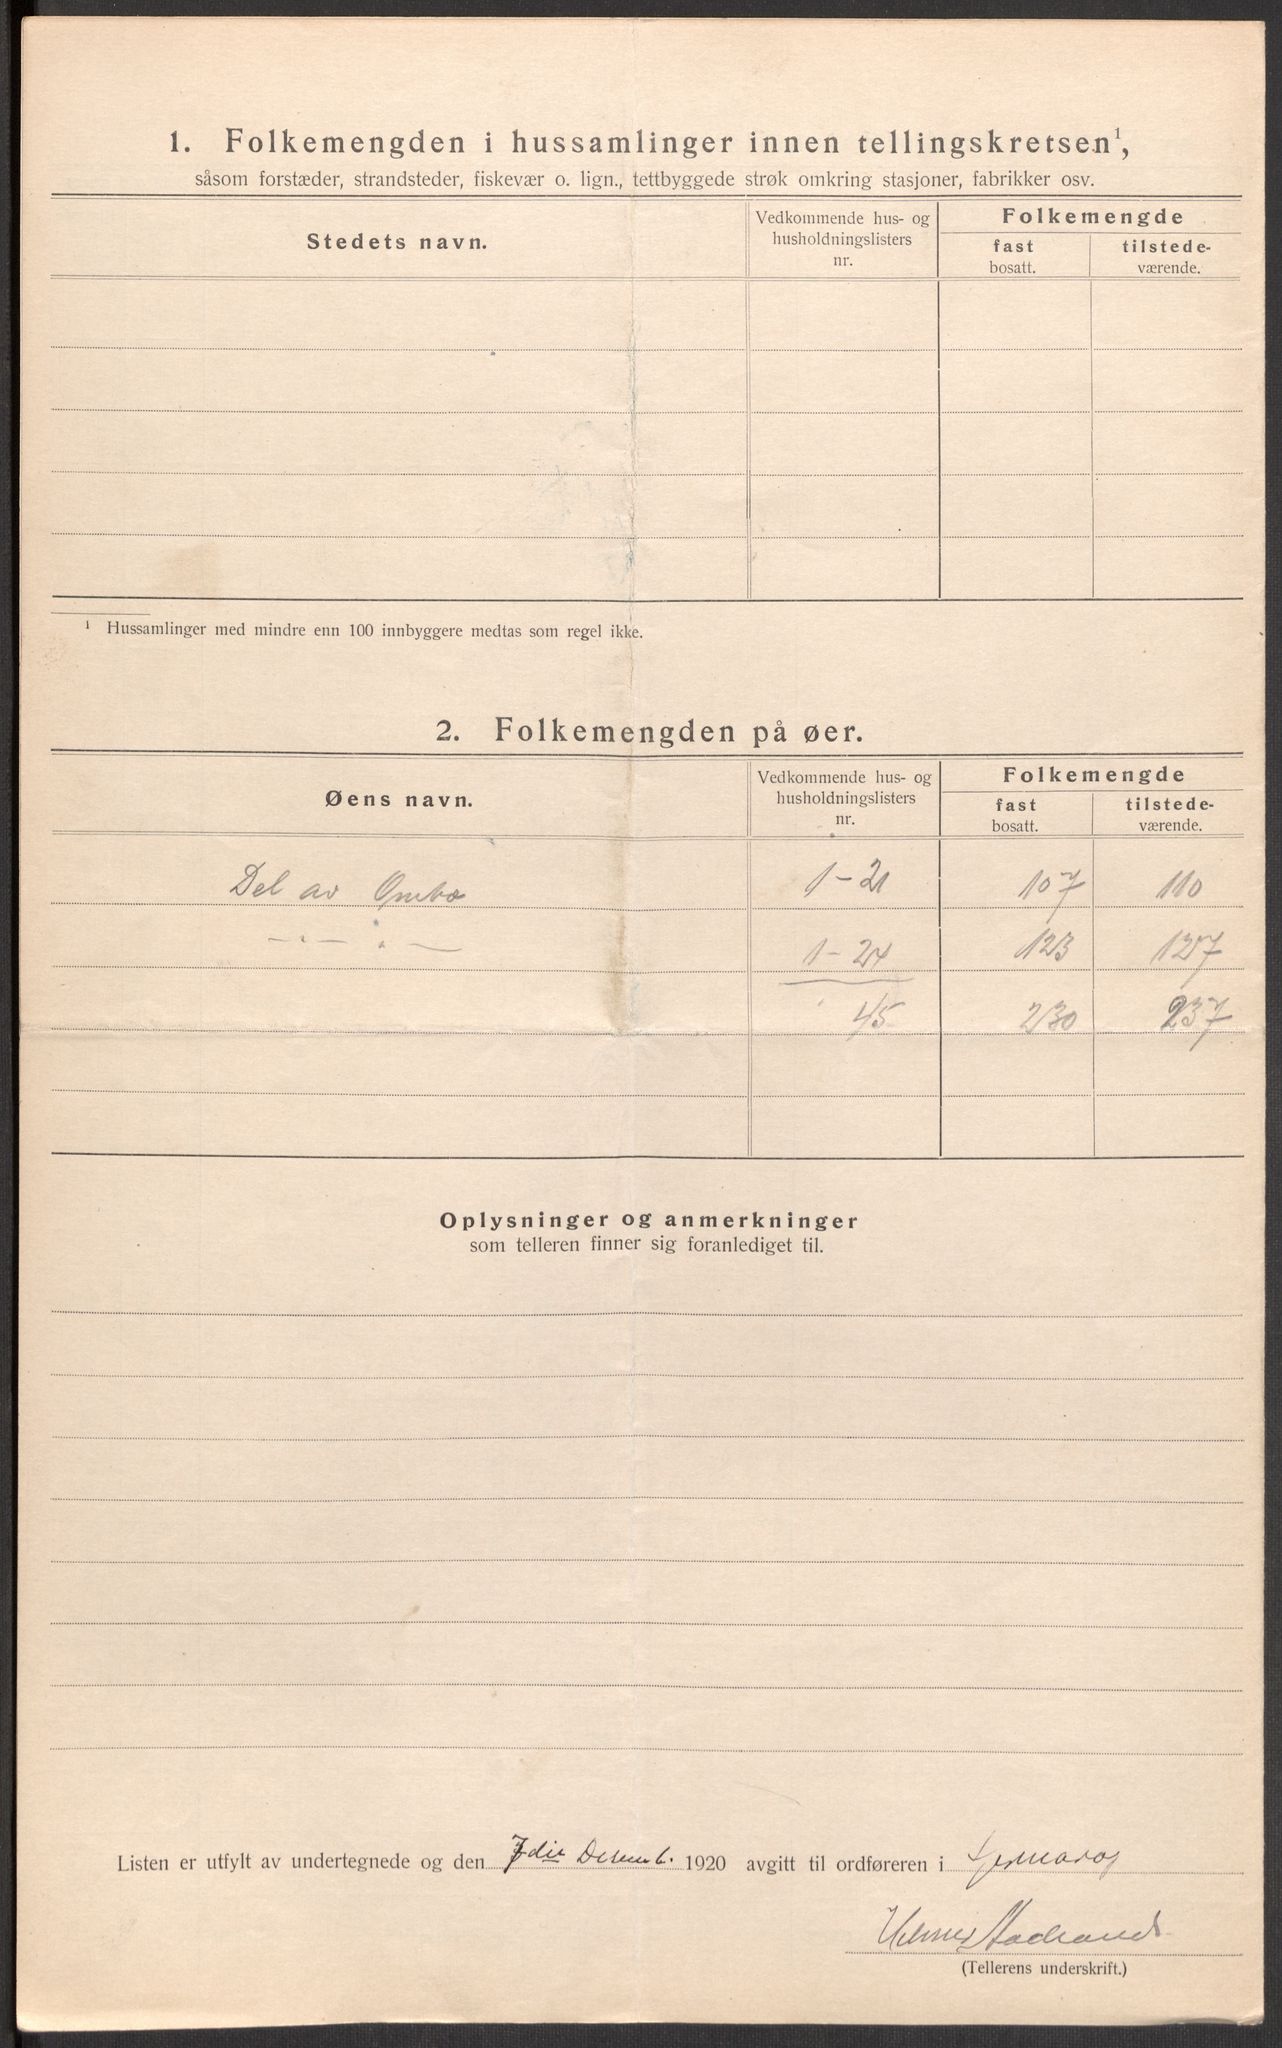 1. Folkemengden i hussamlinger innen tellingskretsen¹,
såsom forstæder, strandsteder, fiskevær o. lign., tettbyggede strøk omkring stasjoner, fabrikker osv.
Stedets navn.
Vedkommende hus- og
husholdningslisters
nr.
Folkemengde
fast
bosatt.
tilstede-
værende.
¹ Hussamlinger med mindre enn 100 innbyggere medtas som regel ikke.
2. Folkemengden på øer.
Øens navn.
Vedkommende hus- og
husholdningslisters
nr.
Folkemengde
fast
bosatt.
tilstede-
værende.
Del av Ombo 1-21 107 110
-"- "- 1-24 123 127
45 230 237
Oplysninger og anmerkninger
som telleren finner sig foranlediget til.
Listen er utfylt av undertegnede og den 7de Decemb. 1920 avgitt til ordføreren i
(Tellerens underskrift.)